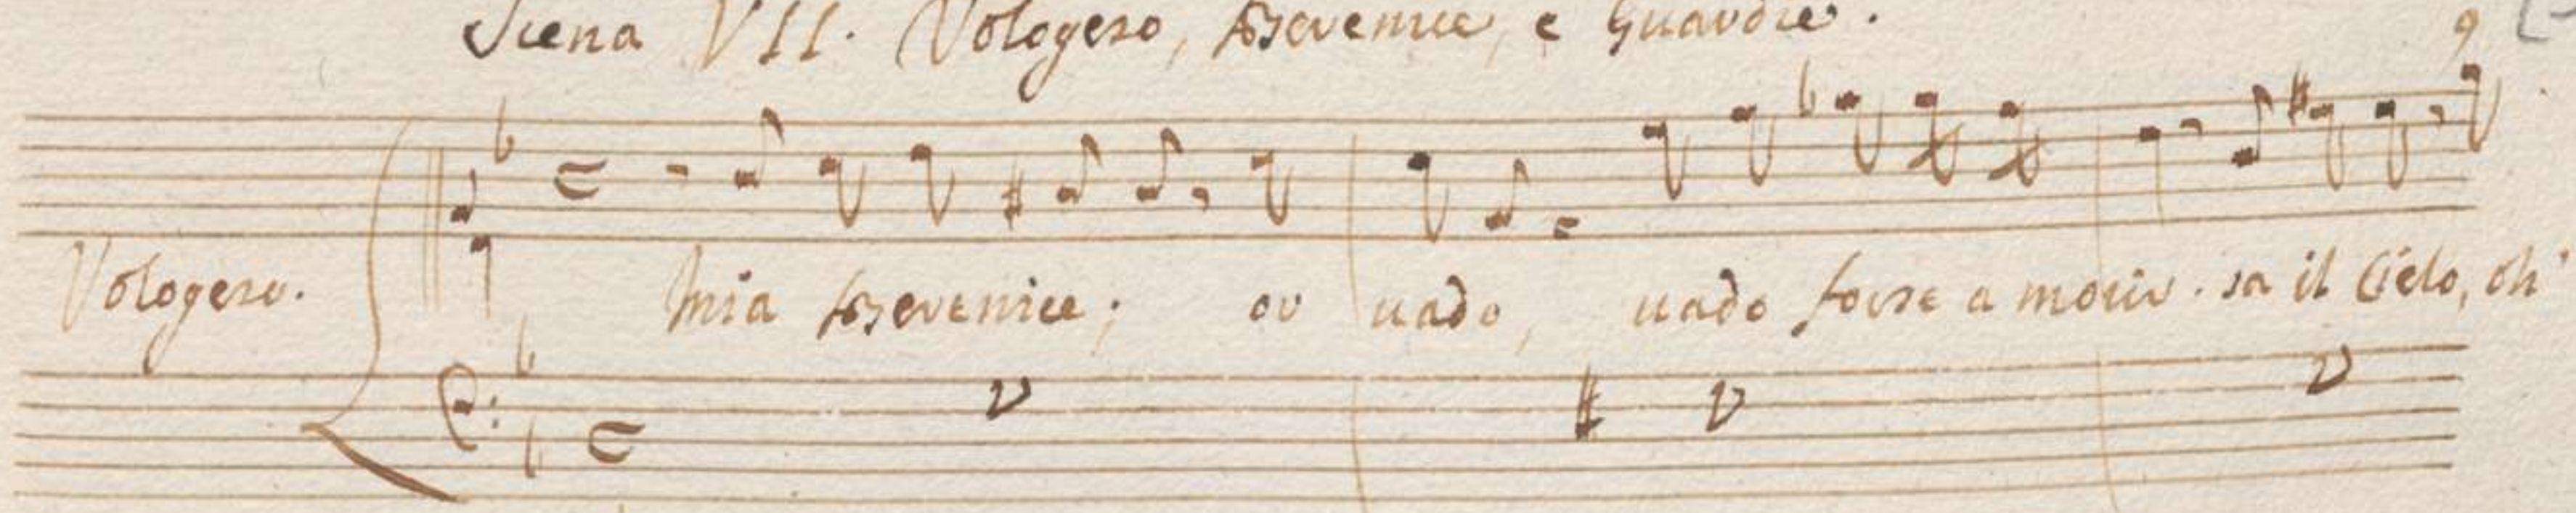 Scena VII. Vologeso, Berenice, e Guardie. 9
Vologeso. Mia Berenice; or uado, uado forse a morir. sa il Cielo, oh'